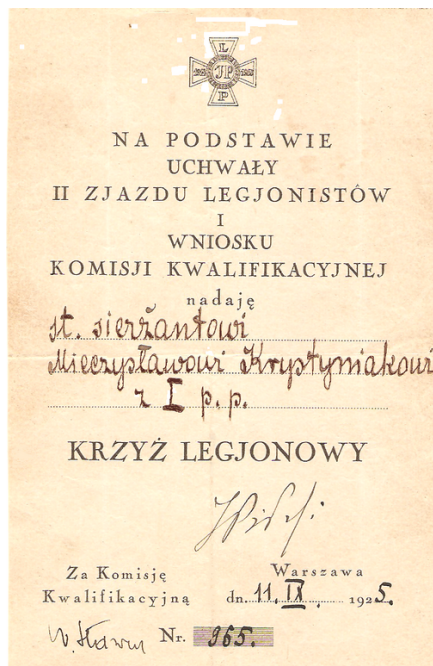 L
JP
P
NA PODSTAWIE
UCHWAŁY
II ZJAZDU LEGJONISTÓW
I
WNIOSKU
KOMISJI KWALIFIKACYJNEJ
nadaję
st. sierżantowi
Mieczysławowi Krystyniakowi
z I p. p.
KRZYŻ LEGJONOWY
Za Komisję
Kwalifikacyjną
Warszawa
dn. 11. IX. 1925.
Nr. 965.